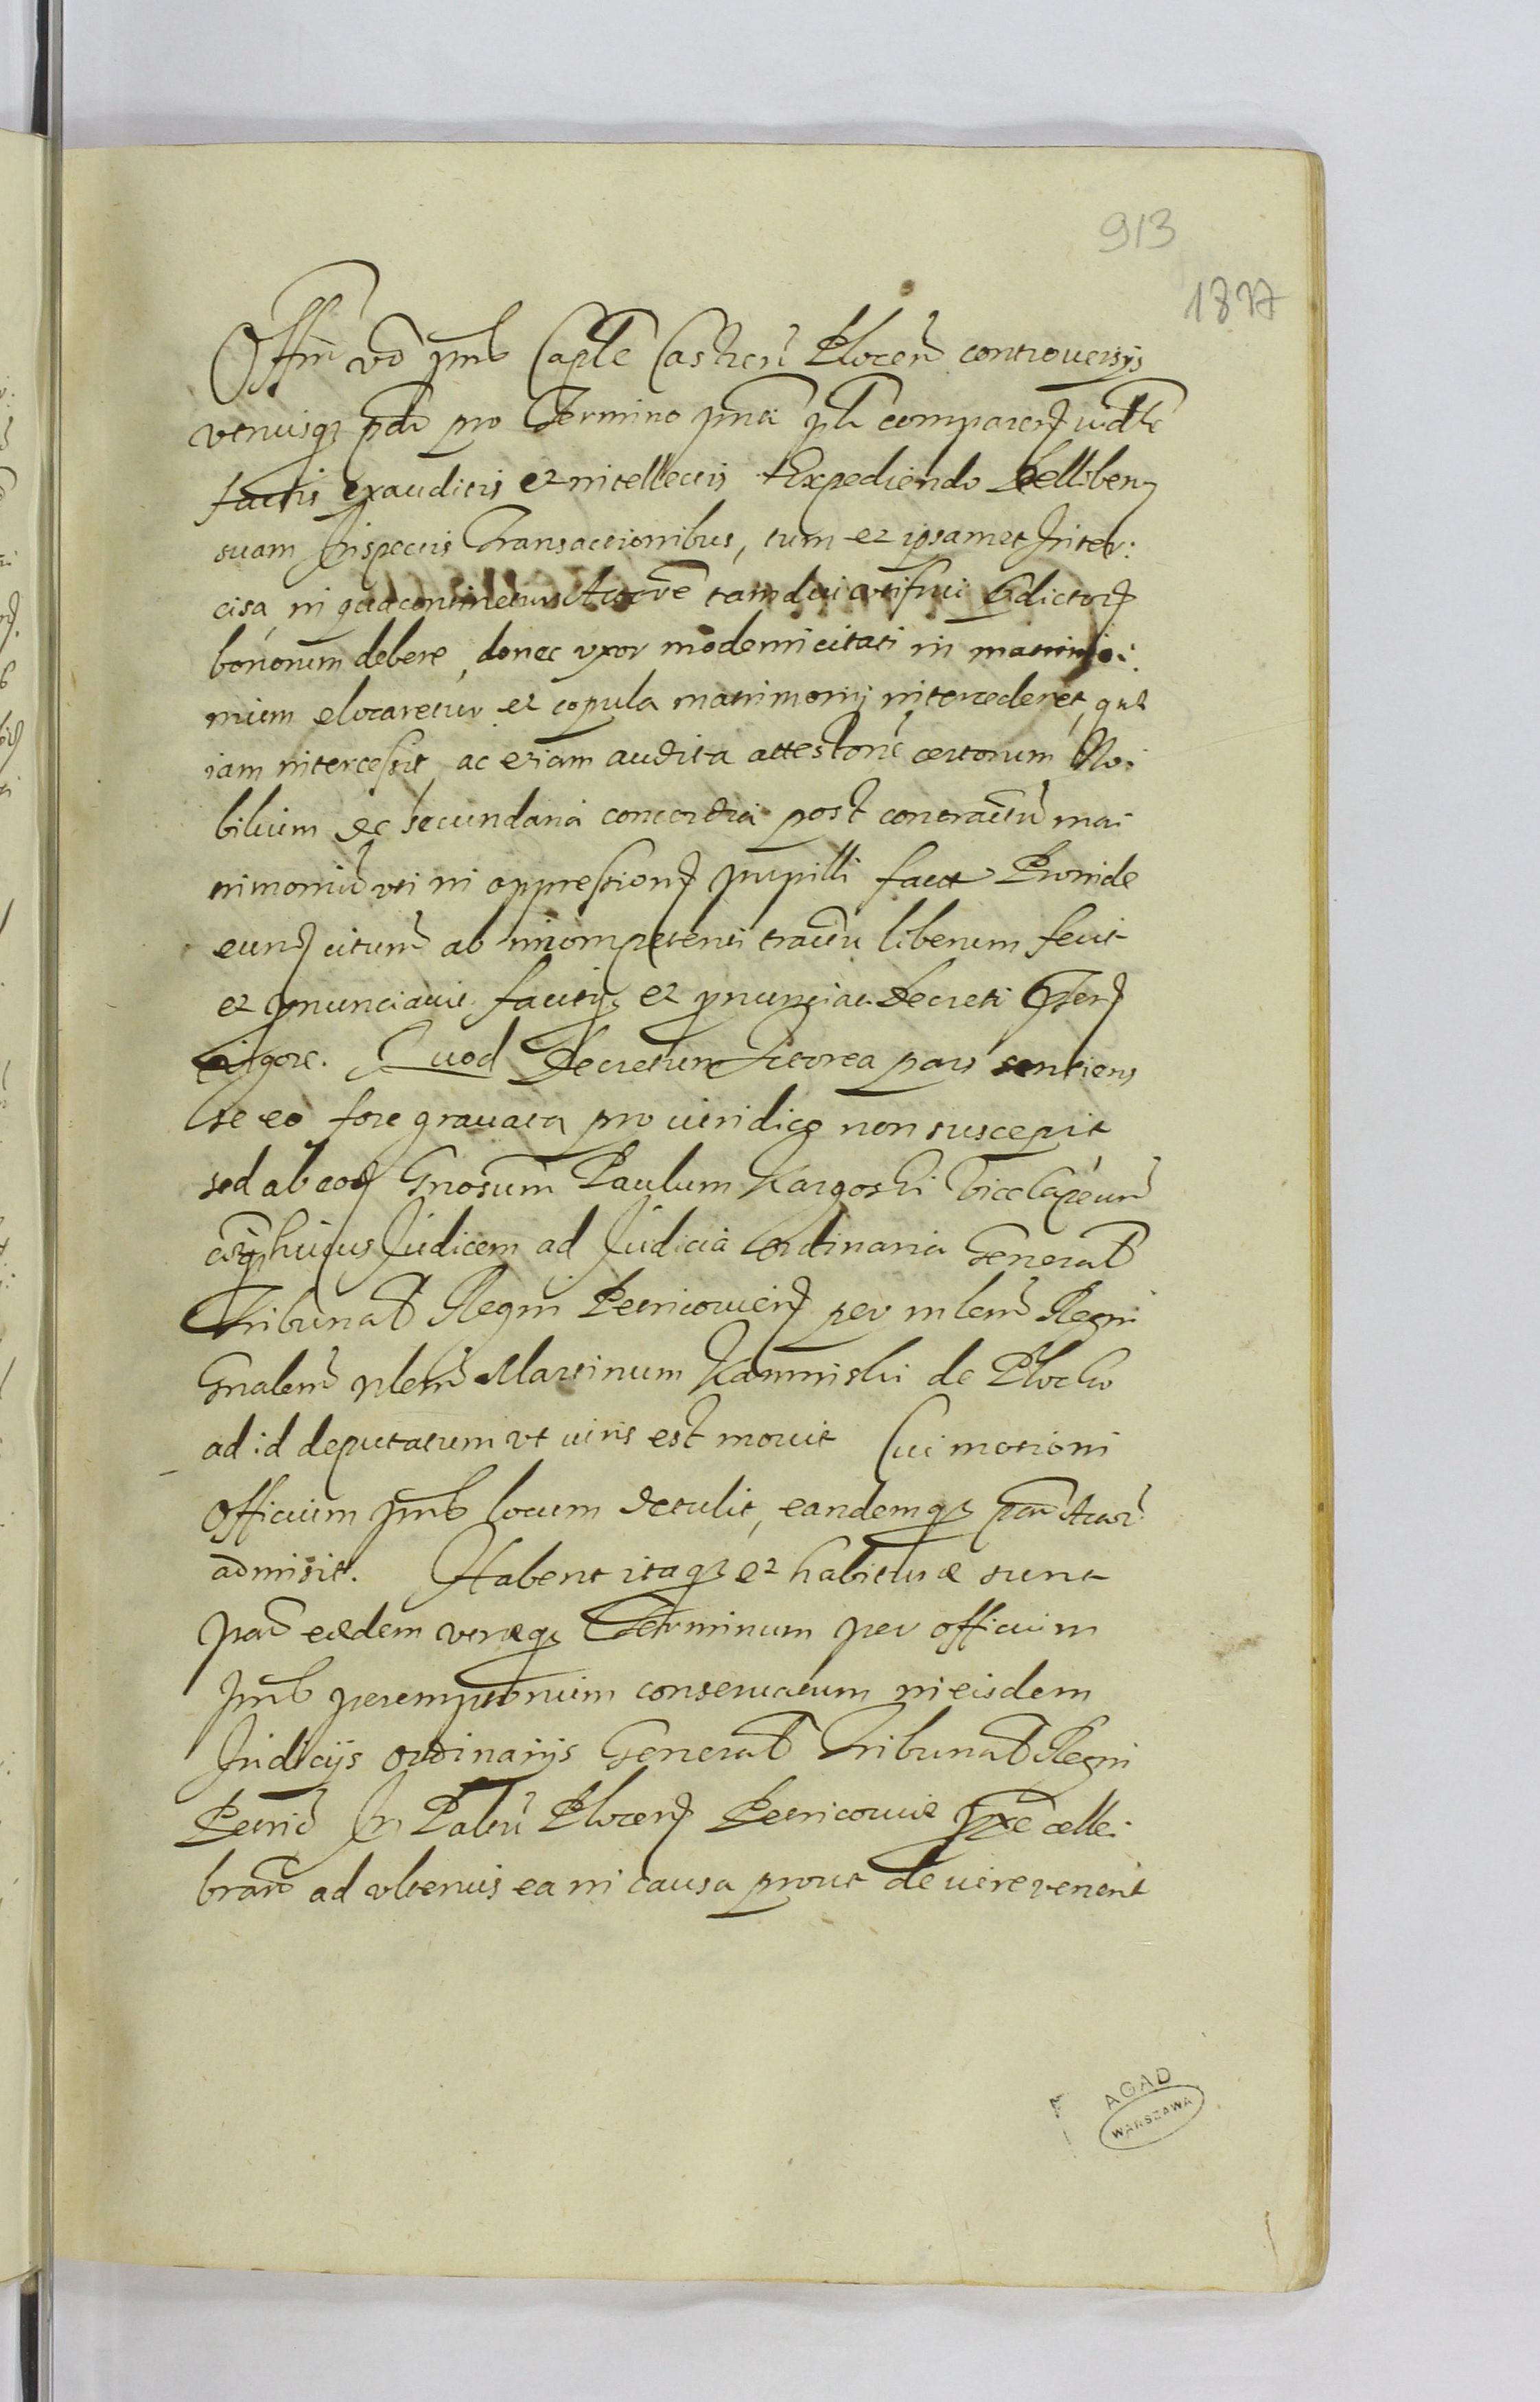 913
1827
Offm vo pns Caple Castren Plocen controuersijs
vtriusq pts pro Termino pnti pti comparen judtr
factis exauditis et intellectis Expediendo Delliben
suam Inspectis Transactionibus, tum et ipsamet Inter:
cisa, in qua continetur Actore tamdiu
bonorum debere, donec vxor moderni citati in matrimo:
nium elocaretur et copula matrimonij intercederet, que
iam intercessit, ac etiam audita attestone certorum No:
bilium de secundaria concordia post contractu ma:
trimoniu vti in oppression pupilli facta Proinde
eund citum ab incompetenti tractu liberum fecit
et pnunciauit facitq et pnunciat Decreti pnten
vigore. Quod Decretum Actorea pars sentiens
se eo fore grauata pro iuridico non suscepit
sed ab eod Gnosum Paulum Kargoski Vice Capeum
eiusq huius Judicem ad Judicia Ordinaria General
Tribunal Regni Petricouien per mlem Regni
Gnalem plem Martinum Kaminski de Plocko
ad id deputatum vt iuris est mouit Cui motioni
Officium pns locum detulit, eandemq pti Actor
admisit. Habent itaq et habiturae sunt
par eaedem vtraeq Terminum per officium
pns peremptorium conseruatum in eisdem
Judicijs ordinarijs General Tribunal Regni
Petric In Palnu Plocen Petricouie pxe celle:
bran ad vlterius ea in causa prout de iure venerit
AGAD
WARSZAWA